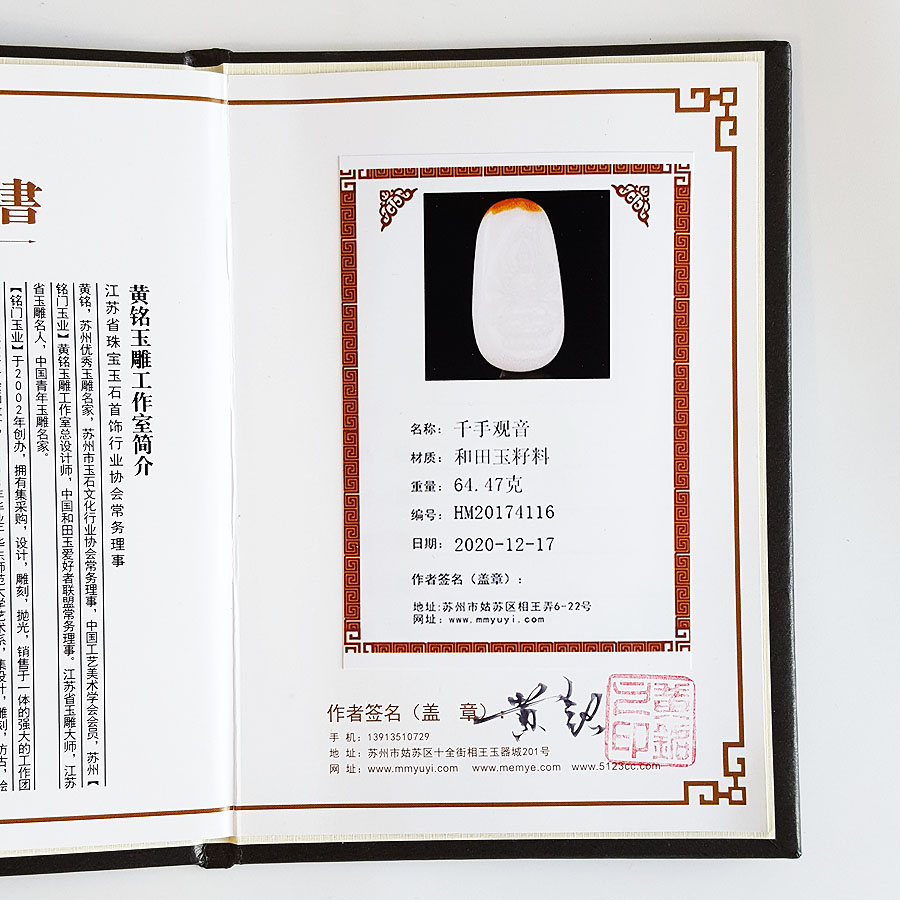 書
黄铭玉雕工作室简介
江苏省珠宝玉石首饰行业协会常务理事
黄铭，苏州优秀玉雕名家，苏州市玉石文化行业协会常务理事，中国工艺美术学会会员，苏州【
铭门玉业】黄铭玉雕工作室总设计师，中国和田玉爱好者联盟常务理事。江苏省玉雕大师，江苏
省玉雕名人，中国青年玉雕名家。
【铭门玉业】于2002年创办，拥有集采购，设计，雕刻，抛光，销售于一体的强大的工作团
名称：千手观音
材质：和田玉籽料
重量：64.47克
编号：HM20174116
日期：2020-12-17
作者签名（盖章）：
地址:苏州市姑苏区相王弄6-22号
网址：www.mmyuyi.com
作者签名（盖 章）：黄铭
手 机：13913510729
地 址：苏州市姑苏区十全街相王玉器城201号
网 址：www.mmyuyi.com www.memye.com www.5123cc.com